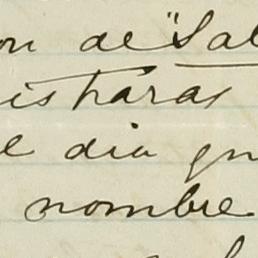 on de "Sal
istaras
e dia qu
nombre